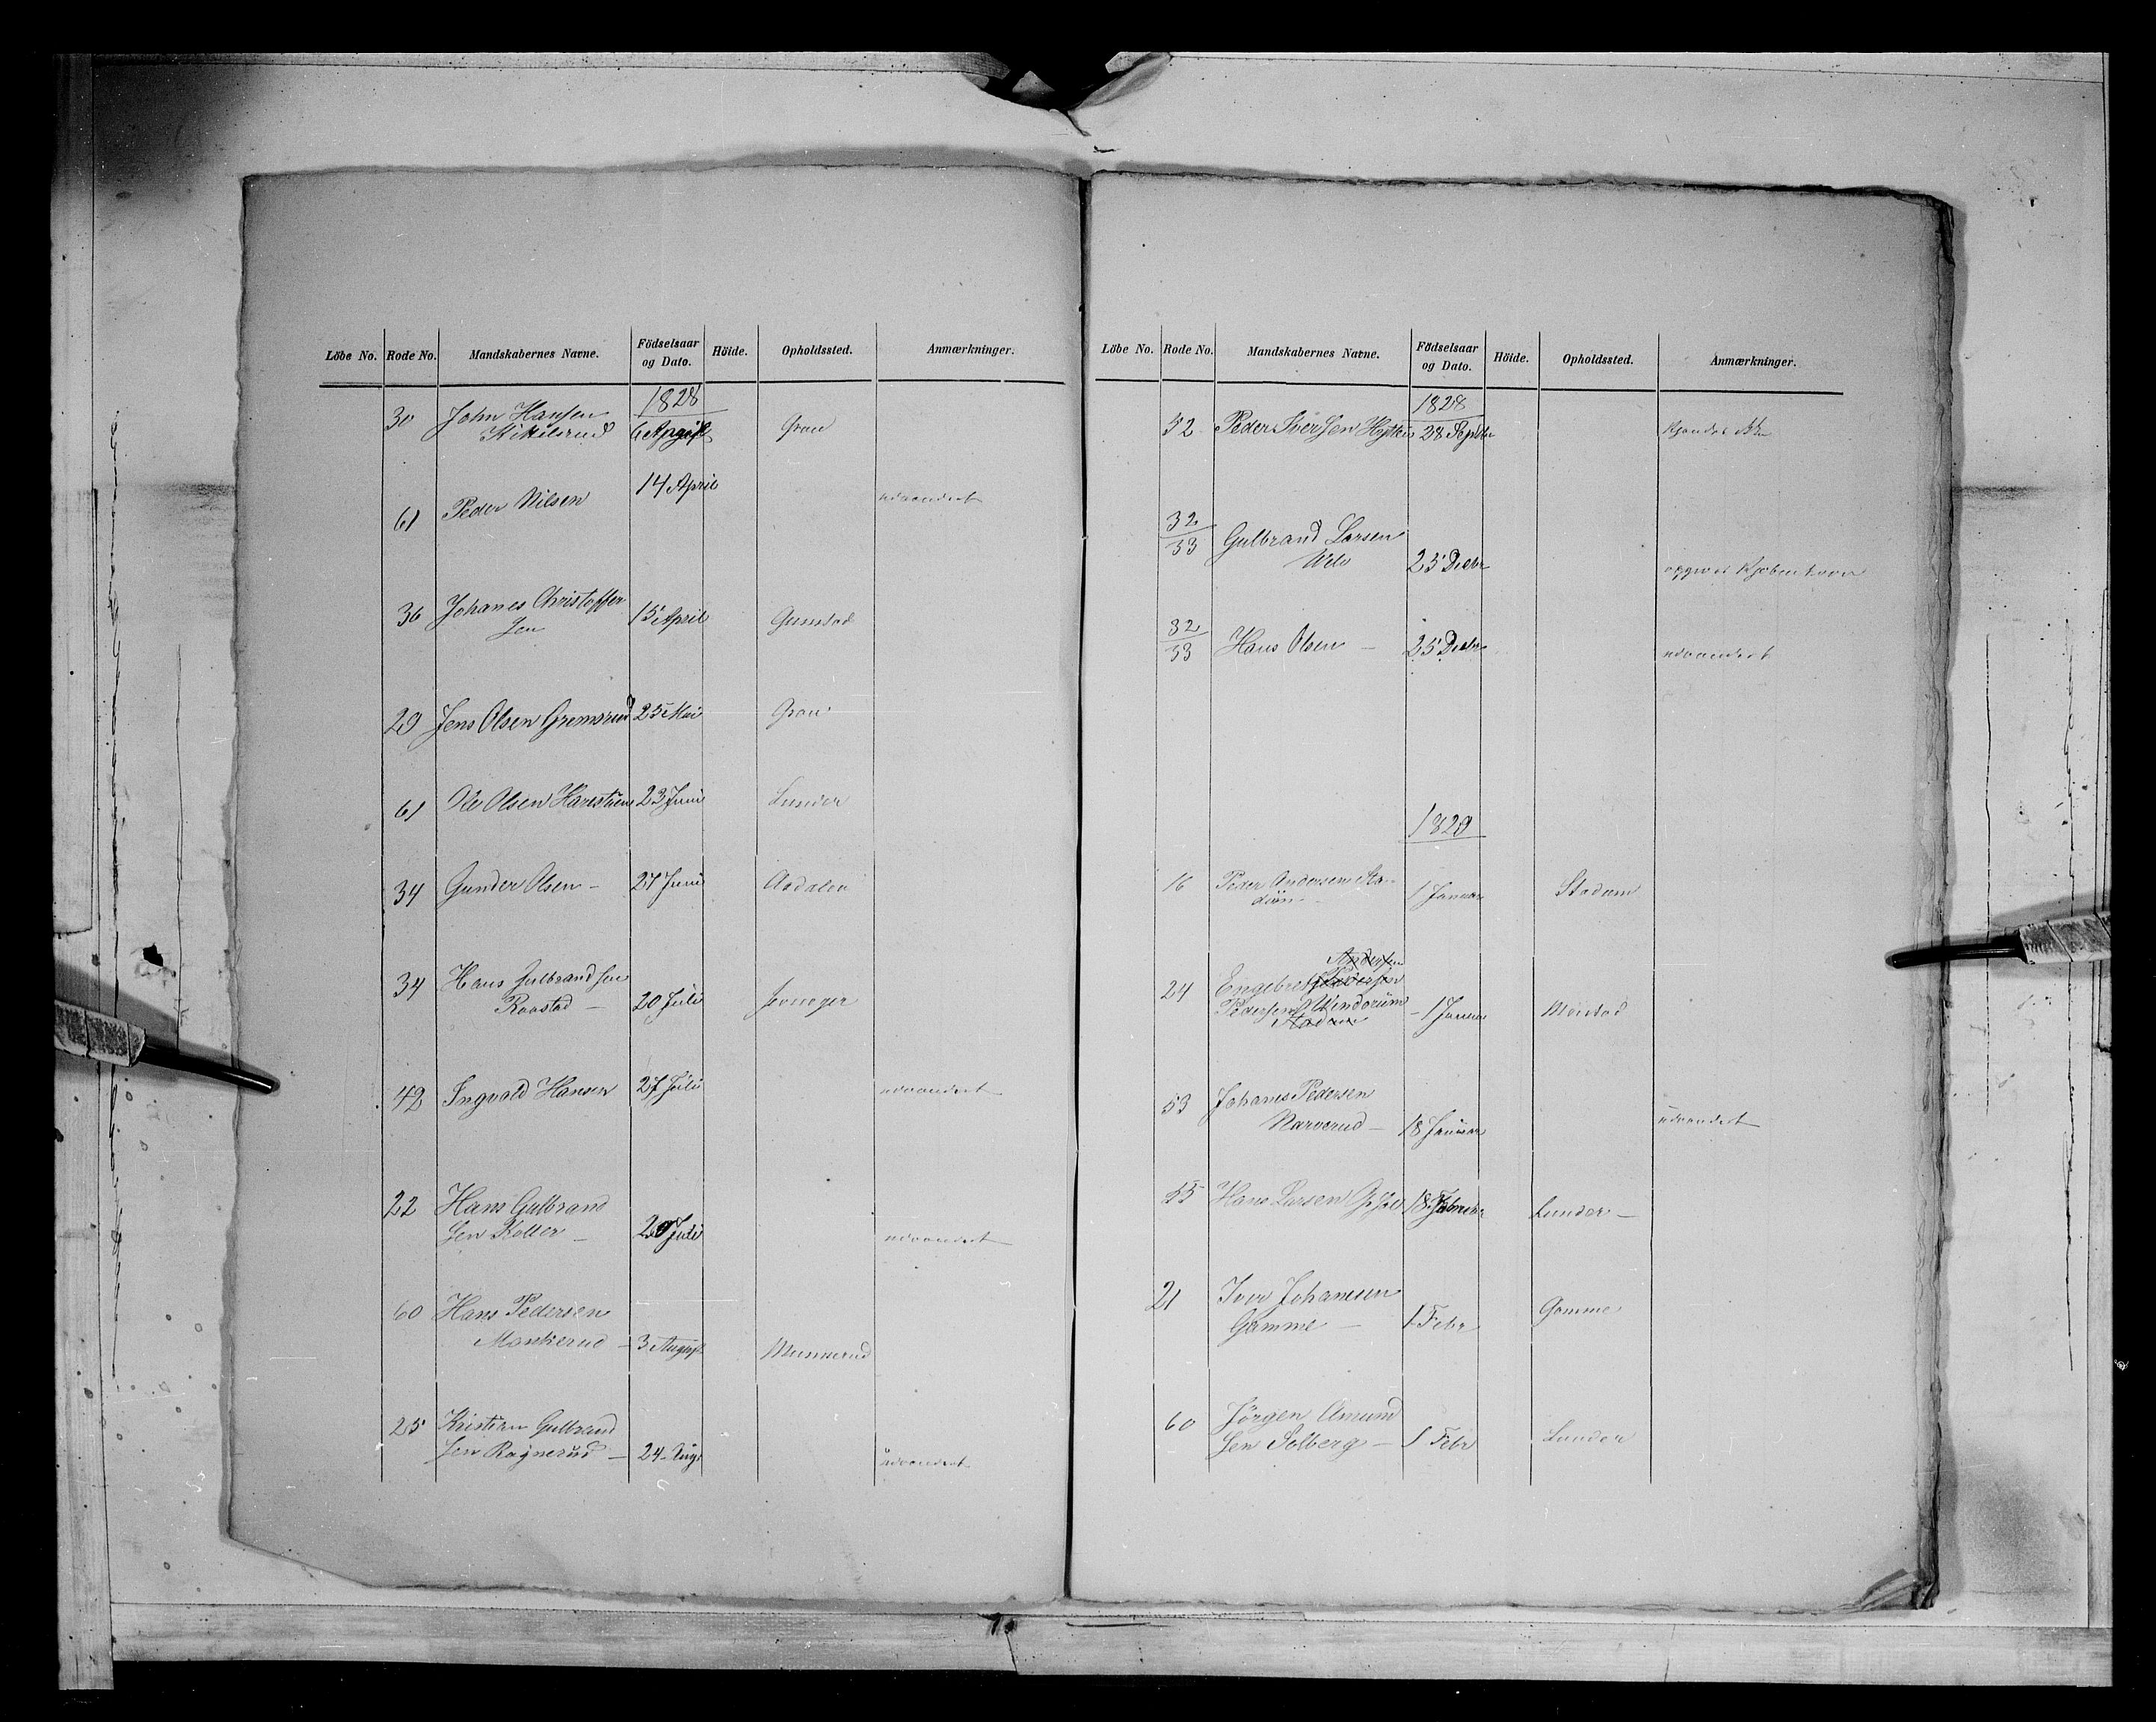 Löbe No. Rode No. Mandskabernes Navne. Födselsaar og Dato. Höide. Opholdssted. Anmærkninger.
1828
30 John Hansen
Kikilsrud 6 Gran
61 Peder Nilsen 14 April udvandret
36 Johanes Christoffer
sen 15 April Grinstad
29 Jens Olsen Gremsrud 25 Mai Gran
61 Ole Olsen 23 Juni Lunder
34 Gunder Olsen – 27 Juni Aadalen
34 Hans Gulbrandsen
Raastad – 20 Juli Jevneger
42 Ingvald Hansen 27 Juli udvandret
22 Hans Gulbrand
sen Kolter – 29 Juli udvandret
60 Hans Pedersen
Monkerud – 3 August Munkerud
25 Kristian Gulbrand
sen Ragnerud – 24 Aug udvandret
Löbe No. Rode No. Mandskabernes Navne. Födselsaar og Dato. Höide. Opholdssted. Anmærkninger.
1828
52 Peder Iversen 28 Septbr Kjendes ikke
32/33 Gulbrand Larsen
Velo 25 Decbr opgives Kjøbenhavn
32/33 Hans Olsen – 25 Decbr udvandret
1829
16 Peder Andersen
1 Januar Stadum
Andersen
24 Engebret
Pedersen – 1 Januar Moistad
53 Johanes Pedersen
Narverud – 18 Januar udvandret
55 Hans Larsen 18 Lunder –
21 Iver Johanesen
Gamme – 1 Febr Gamme
60 Jörgen Amund
sen Solberg – 1 Febr Lunder